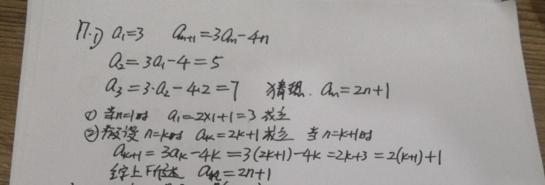 17.(1) a₁=3  aₙ₊₁=3aₙ-4n
a₂=3a₁-4=5
a₃=3·a₂-4·2=7  猜想. aₙ=2n+1
① 当n=1时 a₁=2×1+1=3 成立
② 假设 n=k时 aₖ=2k+1成立 当n=k+1时
aₖ₊₁=3aₖ-4k=3(2k+1)-4k=2k+3=2(k+1)+1
综上所述 aₙ=2n+1